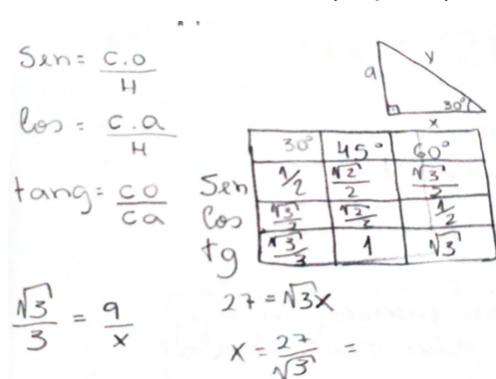 Sen = c.o/H
Cos = c.a/H
tang = co/ca
a y
x 30°
30° 45° 60°
Sen 1/2 √2/2 √3/2
Cos √3/2 √2/2 1/2
tg √3/3 1 √3
√3/3 = 9/x
27 = √3x
x = 27/√3 =